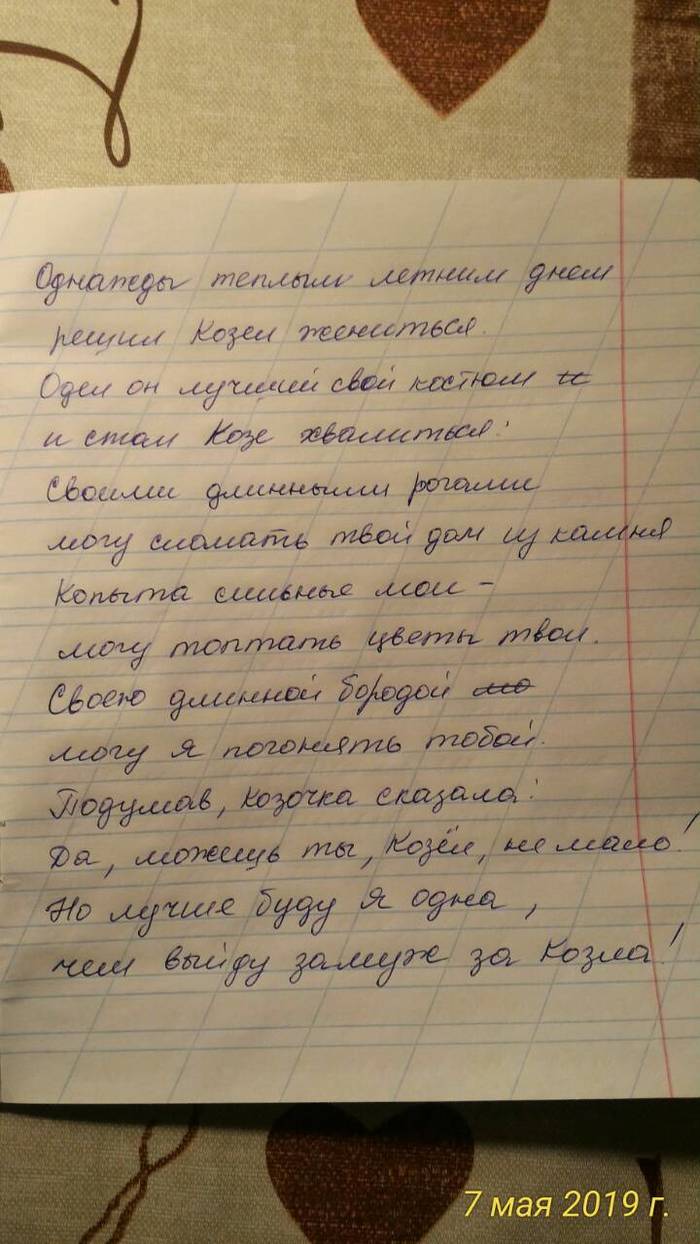 Однажды теплым летним днем
решил Козел жениться.
Одел он лучший свой костюм и
и стал Козе хвалиться:
Своими длинными рогами
могу сломать твой дом из камня
Копыта сильные мои -
могу топтать цветы твои.
Своею длинной бородой мо
могу я погонять тобой.
Подумав, Козочка сказала:
Да, можешь ты, Козёл, не мало!
Но лучше буду я одна,
чем выйду замуж за Козла!
7 мая 2019 г.